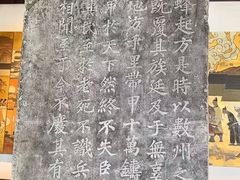 蜂起方是時以數州之
既覆其族延及于無辜
地方千里帶甲十萬鑄
甲於天下然終不失臣
其民至於老死不識兵
相聞至于今不廢其有